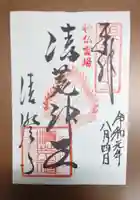 奉拝
令和元年
八月四日
神仏霊場
清荒神王
清澄寺